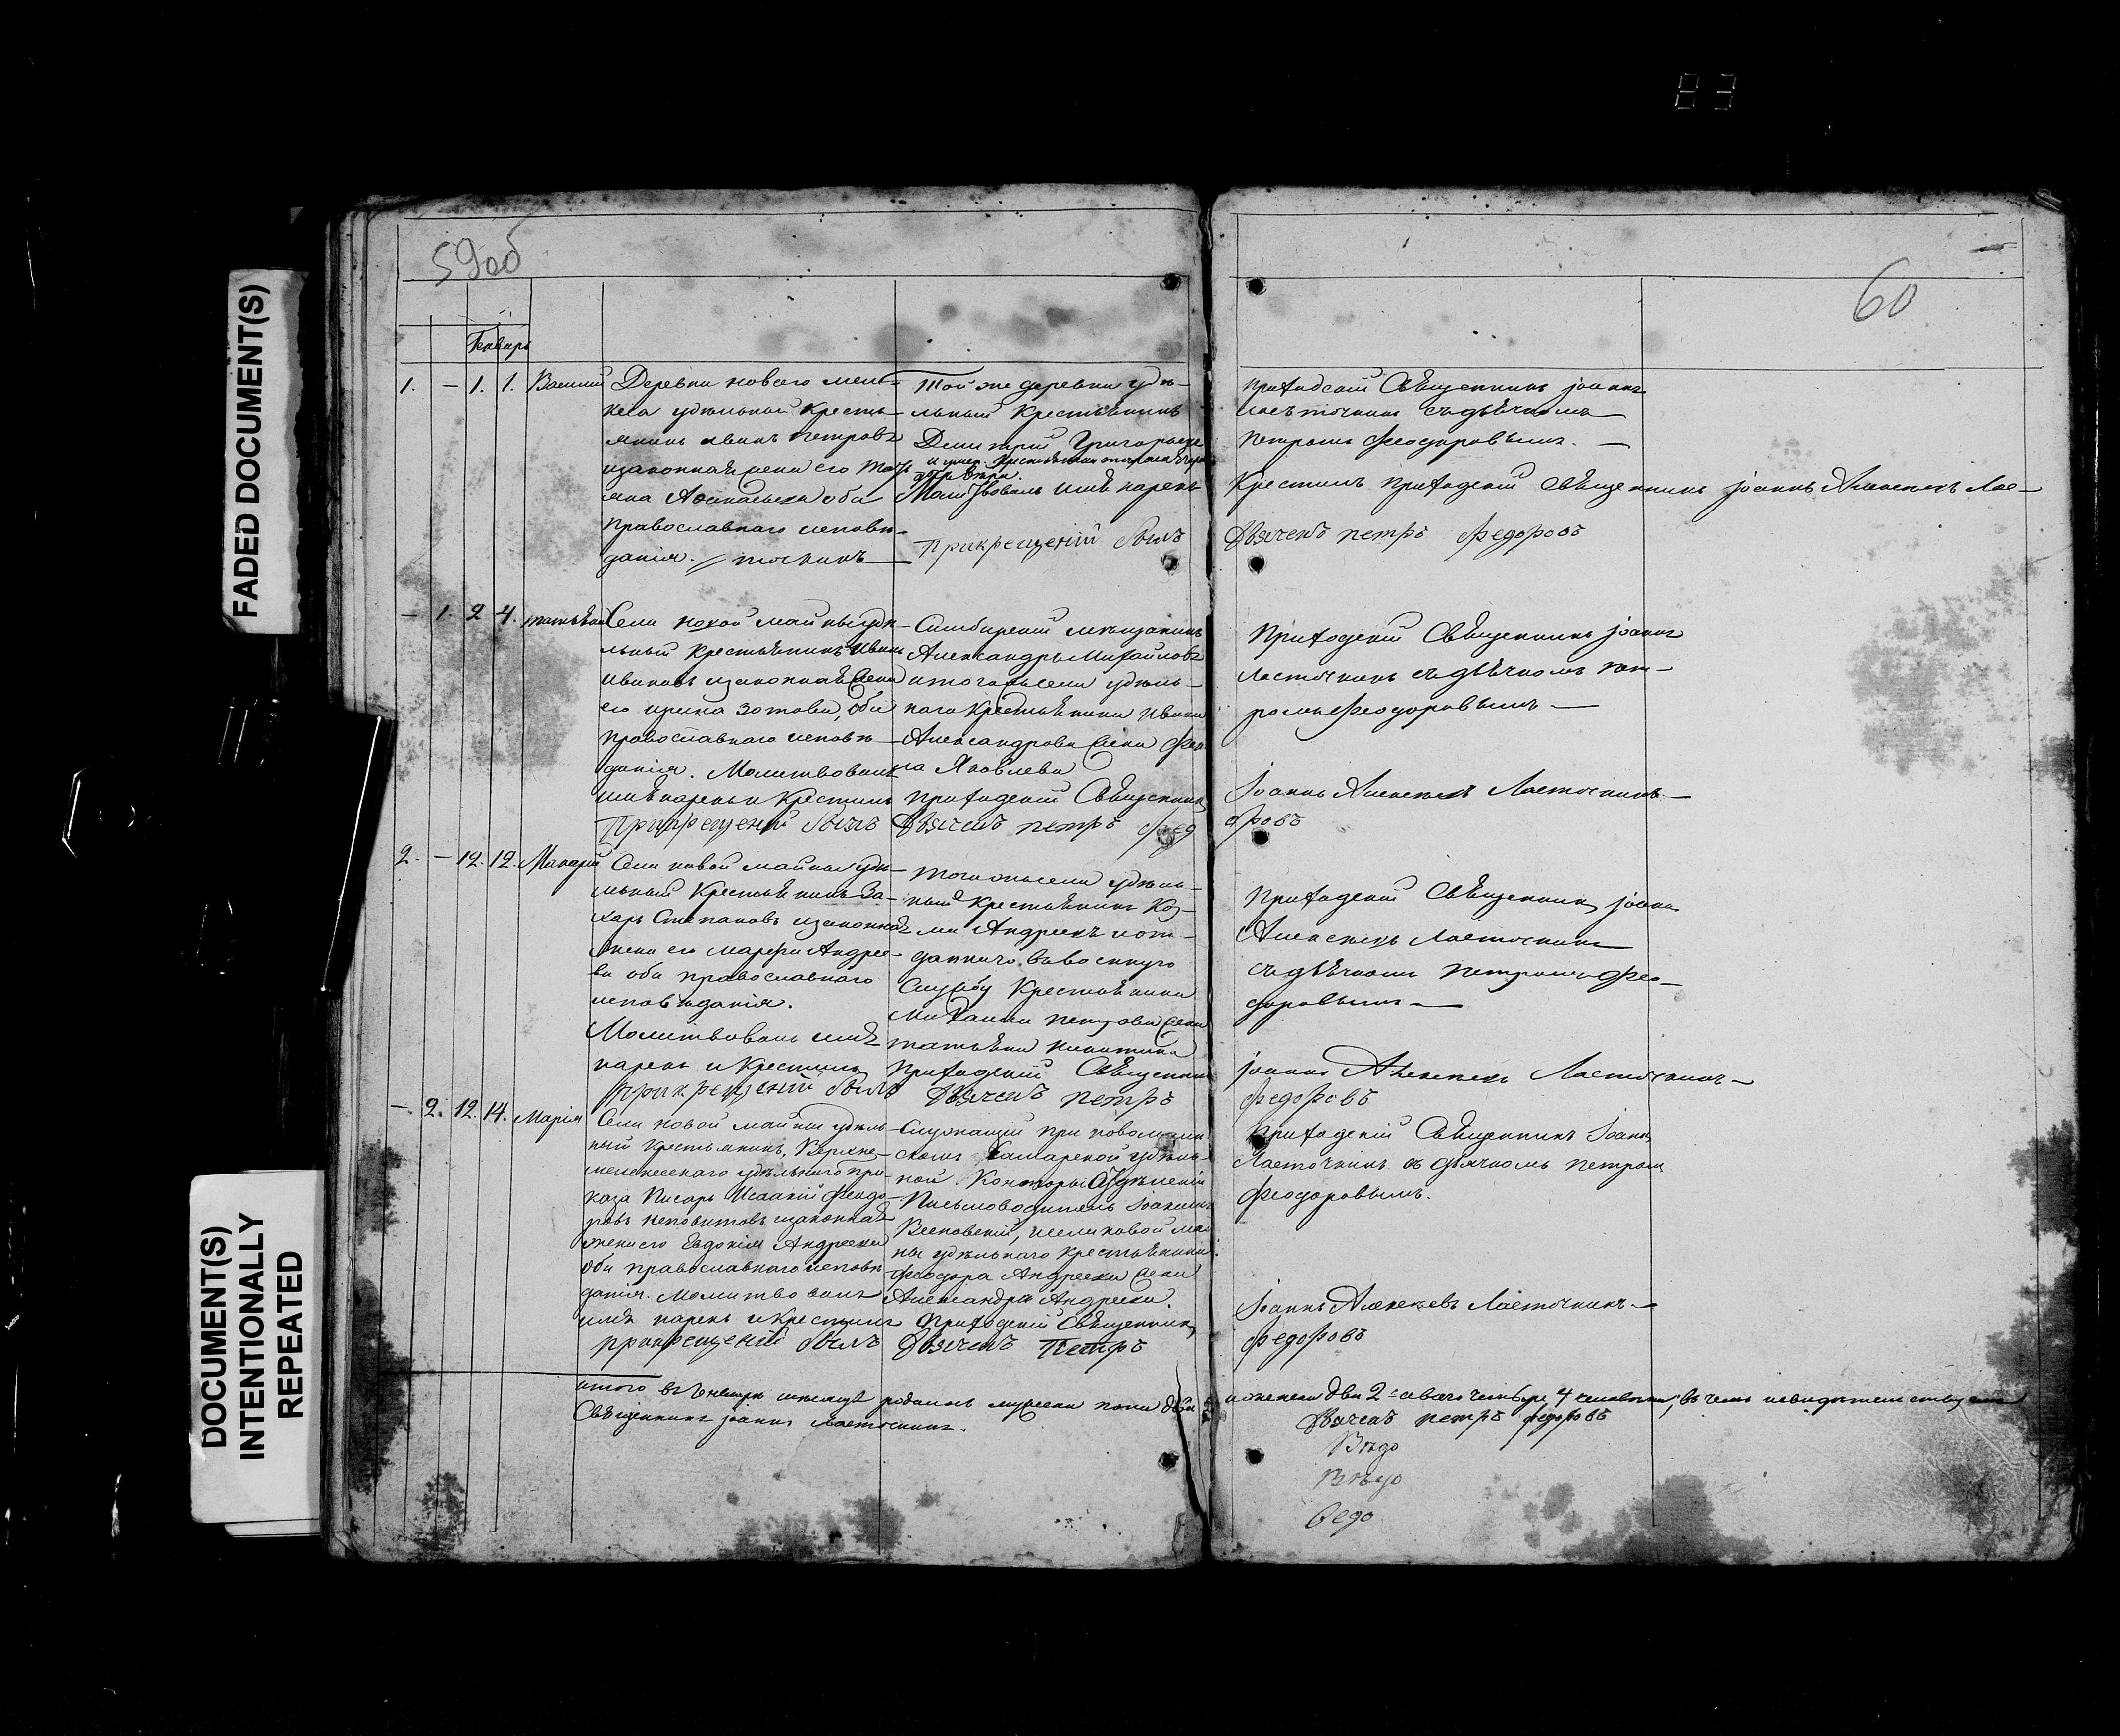 83
FADED DOCUMENT(S)
DOCUMENT(S)
INTENTIONALLY
REPEATED
59об
60
Генварь
1. — 1. 1. Василий
Деревни новаго мелe-
кеса удѣльный кресть-
янинъ иванъ петровъ
изаконная жена его
Аѳанасьева оба
православнаго исповѣ-
данія. // точкинъ
Той же деревни удѣ-
льный крестьянинъ
Димитрій Григорьевъ
Молитвовалъ имя нарекъ
Прикрещеніи былъ
приходскій Священникъ іоаннъ
ласточкинъ съ дьячкомъ
петромъ феодоровымъ. —
Крестилъ приходскій Священникъ іоаннъ Алексѣевъ Лас-
Дьячекъ петръ федоровъ
— 1. 2 4. татьяна
Села новой майны удѣ-
льный крестьянинъ иванъ
ивановъ изаконная жена
его ирина зотова, оба
православнаго исповѣ-
данія. Молитвовалъ
имя нарекъ и крестилъ
Прикрещеніи былъ
Симбирскій мѣщанинъ
Александръ Михайловъ
итогожъ села удѣль-
наго крестьянина ивана
Александрова жена
Яковлева
приходскій Священникъ
Дьячекъ петръ фед
Приходскій Священникъ іоаннъ
ласточкинъ съ дьячкомъ пет-
ромъ феодоровымъ —
іоаннъ Алексѣевъ Ласточкинъ —
оровъ
2. — 12. 12. Макарій
Села новой майны удѣ-
льный крестьянинъ За-
харъ Степановъ изаконная
жена его марфа Андрее-
ва оба православнаго
исповѣданія.
Молитвовалъ имя
нарекъ и крестилъ
Прикрещеніи былъ
тогожъ села удѣль-
ный крестьянинъ Коз-
ма Андреевъ иот-
даннаго въ военную
службу крестьянина
Михаила петрова жена
татьяна никитина
приходскій Священникъ
Дьячекъ петръ
приходскій Священникъ іоаннъ
Алексѣевъ ласточкинъ
съ дьячкомъ петромъ фео-
доровымъ —
іоаннъ Алексѣевъ Ласточкинъ —
федоровъ
— 2. 12. 14. Марія
Села новой майны удѣль-
ный крестьянинъ, Верхне-
мелекескаго удѣльнаго при-
каза Писарь Исаакій феодо-
ровъ изаконная
жена его Евдокія Андреева
оба православнаго исповѣ-
данія. Молитвовалъ
имя нарекъ и крестилъ
прикрещеніи былъ
Служащій при
Самарской удѣль-
ной Конторы Отдѣленіи
Письмоводитель
исела новой май
ны удѣльнаго крестьянина
феодора Андреева жена
Александра Андреева.
приходскій Священникъ
Дьячекъ Петръ
Приходскій Священникъ Іоаннъ
Ласточкинъ съ дьячкомъ петромъ
феодоровымъ.
Іоаннъ Алексѣевъ Ласточкинъ —
федоровъ
итого въ Генварѣ мѣсяцѣ родилось мужеска пола два 2 и женска два 2 а всего четыре 4 человѣка, въ чемъ
Священникъ іоаннъ ласточкинъ.
Дьячекъ петръ федоровъ